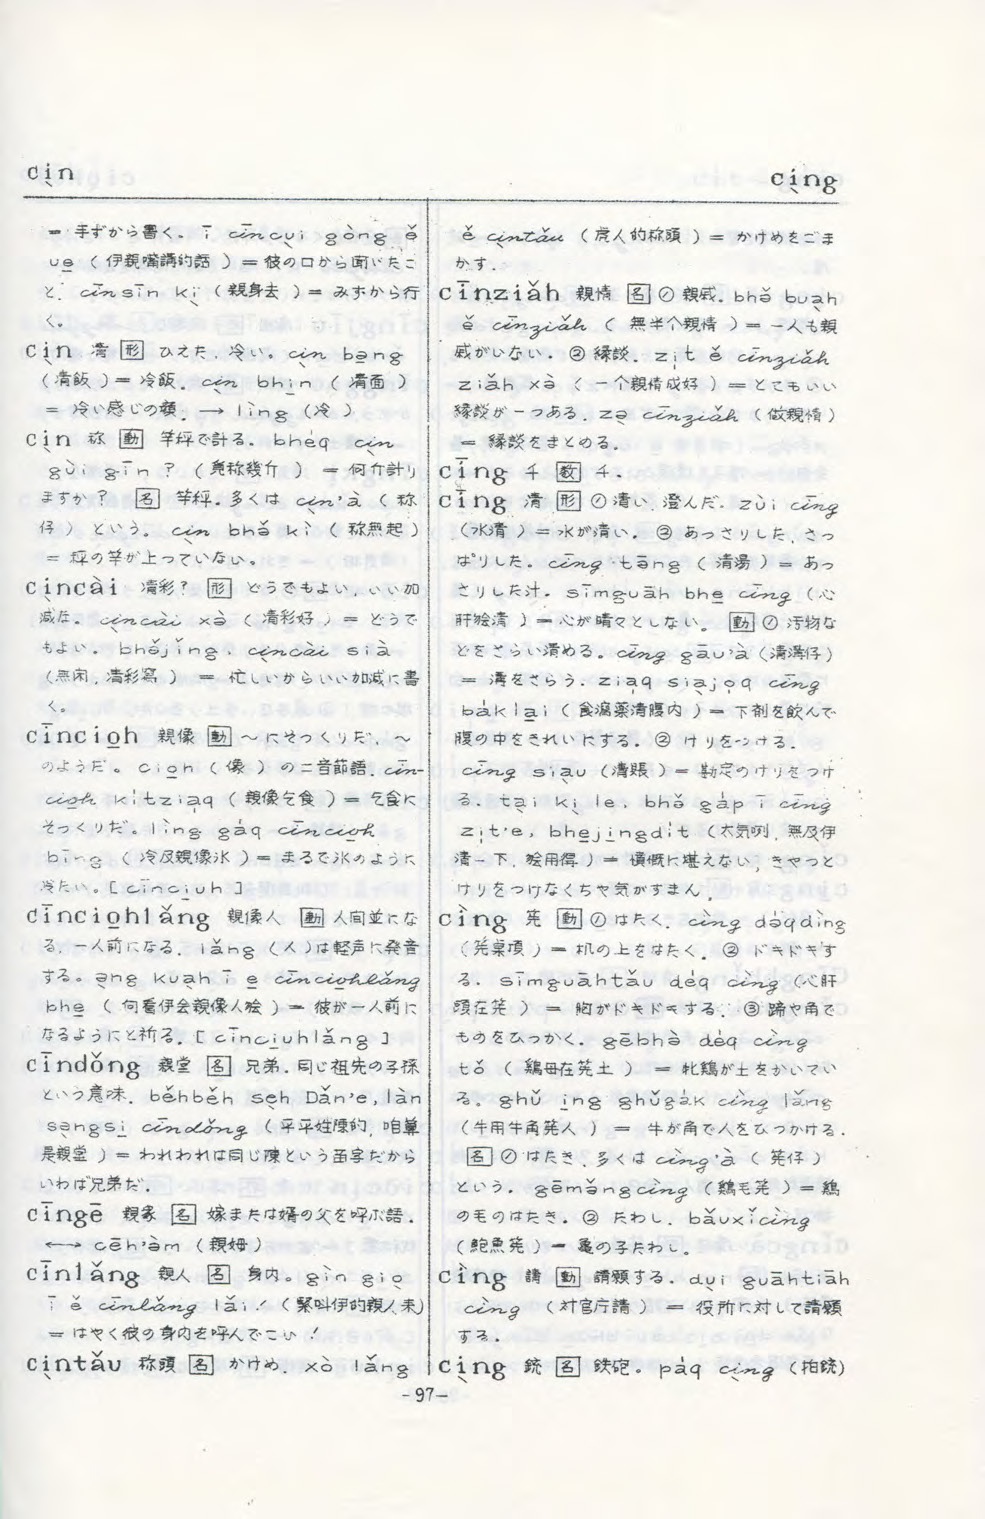 cı̣n
cı̣ng
= 手ずから書く。ī cīncụi gòng ě
ue̲ (伊親嘴講的話) = 彼の口から聞いたこ
と. cīnsīn kı̣ (親身去) = みずから行
く。
cı̣n 凊 [形] ひえた. 冷い。cı̣n bəng
(凊飯) = 冷飯. cı̣n bhi̲n (凊面)
= 冷い感じの顔. → lìng (冷)
cı̣n 称 [動] 竿秤で計る. bhéq cı̣n
gùi gīn ? (卜称幾斤) = 何斤計り
ますか? [名] 竿秤. 多くは cı̣n'à (称
仔) という。cı̣n bhə̌ kì (称無起)
= 秤の竿が上っていない。
cı̣ncài 凊彩? [形] どうでもよい. いい加
減な. cı̣ncài xà (凊彩好) = どうで
もよい. bhə̌jǐng. cı̣ncài sià
(無閑, 凊彩寫) = 忙しいからいい加減に書
く。
cīncio̲h 親像 [動] ～にそっくりだ. ～
のようだ。cio̲h (像) の二音節語. cīn-
cio̲h kı́tziaq (親像乞食) = 乞食に
そっくりだ。lìng gáq cīncio̲h
bīng (冷及親像氷) = まるで氷のように
冷たい。[cīnciu̲h]
cīncio̲hlǎng 親像人 [動] 人同並にな
る. 一人前になる. lǎng (人) は軽声に発音
する。ạng kuạh ī e̲ cīncio̲hlǎng
bhe̲ (向看伊会親像人𣍐) = 彼が一人前に
なるようにと祈る. [cīnciu̲hlǎng]
cīndǒng 親堂 [名] 兄弟. 同じ祖先の子孫
という意味. běhběh sẹh Dǎn'e, làn
sə̣ngsi̲ cīndǒng (平平姓陳的, 咱單
是親堂) = われわれは同じ陳という苗字だから
いわば兄弟だ.
cīngē 親家 [名] 嫁または婿の父を呼ぶ語.
←→ cēh'àm (親姆)
cīnlǎng 親人 [名] 身内。gìn giọ
ī ě cīnlǎng lǎi ! (緊叫伊的親人来)
= はやく彼の身内を呼んでこい !
cı̣ntǎu 称頭 [名] かけめ. xò lǎng
ě cı̣ntǎu (虎人的称頭) = かけめをごま
かす.
cīnziǎh 親情 [名] ① 親戚. bhə̌ buạh
ě cīnziǎh (無半个親情) = 一人も親
戚がいない. ② 縁談. zı̍t ě cīnziǎh
ziǎh xà (一个親情成好) = とてもいい
縁談が一つある. zọ cīnziǎh (做親情)
= 縁談をまとめる.
cīng 千 [数] 千.
cīng 清 [形] ① 清い. 澄んだ. zùi cīng
(水清) = 水が清い. ② あっさりした. さっ
ぱりした. cīng tāng (清湯) = あっ
さりした汁. sīmguāh bhe̲ cīng (心
肝𣍐清) = 心が晴々としない。[動] ① 汚物な
どをさらい清める. cīng gāu'à (清溝仔)
= 溝をさらう. ziạq siạjọq cīng
bák lai̲ (食瀉薬清腹内) = 下剤を飲んで
腹の中をきれいにする. ② けりをつける.
cīng siạu (清賬) = 勘定のけりをつけ
る. tại kị le. bhə̌ gáp ī cīng
zı̍t'e, bhe̲jingdı́t (太気咧, 無及伊
清一下, 𣍐用得) = 憤慨に堪えない, きゃつと
けりをつけなくちゃ気がすまん.
cìng 筅 [動] ① はたく. cìng dóqdìng
(筅桌頂) = 机の上をはたく. ② ドキドキす
る. sīmguāhtǎu déq cìng (心肝
頭在筅) = 胸がドキドキする. ③ 蹄や角で
ものをひっかく. gēbhà déq cìng
tǒ (鶏母在筅土) = 牝鶏が土をかいてい
る. ghǔ i̲ng ghǔgák cìng lǎng
(牛用牛角筅人) = 牛が角で人をひっかける.
[名] ① はたき. 多くは cìng'à (筅仔)
という. gēmǎngcìng (鶏毛筅) = 鶏
のものはたき. ② たわし. bāuxǐcìng
(鮑魚筅) = 亀の子たわし.
cìng 請 [動] 請願する. dụi guāhtiāh
cìng (対官庁請) = 役所に対して請願
する.
cı̣ng 銃 [名] 鉄砲。páq cı̣ng (拍銃)
-97-